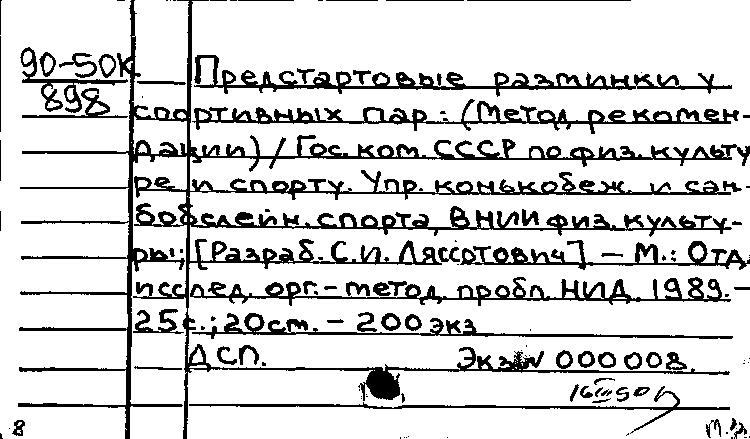 90-50К
898
Предстартовые разминки у
спортивных пар: (Метод. рекомен-
дации) / Гос. ком. СССР по физ. культу
ре и спорту. Упр. конькобеж. и сан-
бобслейн. спорта, ВНИИ физ. культу-
ры; [Разраб. С.И. Ляссотович]. – М.: Отд.
исслед. орг.-метод. пробл. НИД, 1989.–
25с.; 20ст. – 200 экз
ДСП. Экз N 000008.
8